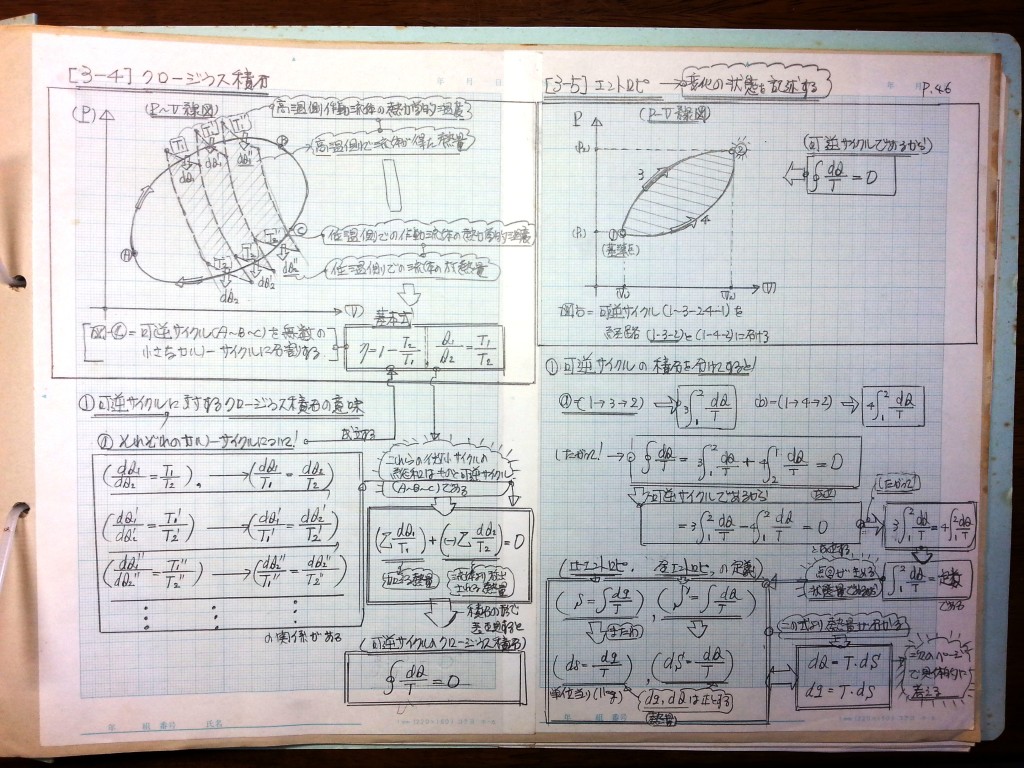 [3-4] クロージウス積分
(P)
P~V線図
高温側作動流体の熱力学的温度
高温側で流体が得た熱量
低温側での作動流体の熱力学的温度
低温側での流体の放熱量
T₁ T₁' T₁''
dQ₁ dQ₁' dQ₁''
T₂ T₂' T₂''
dQ₂ dQ₂' dQ₂''
Ⓐ Ⓑ Ⓒ
(V)
可逆サイクル(A~B~C)を無数の
小さなカルノーサイクルに分割する
基本式
η=1-T₂/T₁ Q₁/Q₂=T₁/T₂
① 可逆サイクルに対するクロージウス積分の意味
ⓐ それぞれのカルノーサイクルについて!
成立する
(dQ₁/dQ₂=T₁/T₂), →(dQ₁/T₁=dQ₂/T₂)
(dQ₁'/dQ₂'=T₁'/T₂') →(dQ₁'/T₁'=dQ₂'/T₂')
(dQ₁''/dQ₂''=T₁''/T₂'') →(dQ₁''/T₁''=dQ₂''/T₂'')
の関係がある
これらの微小サイクルの
総和はもとの可逆サイクル
(A~B~C)である
(Σ dQ₁/T₁)+(-)Σ dQ₂/T₂)=0
積分の形で
表すと
(可逆サイクルのクロージウス積分)
∮dQ/T=0
年 組 番号 氏名
[3-5] エントロピー →変化の状態を記述する
P.46
P
(P~V線図)
(P₂)
(P₁)
3
4
①
②
(基準点)
(V)
可逆サイクルであるから!
∮dQ/T=0
図㋩=可逆サイクル(1-3-2-4-1)を
(1-3-2)と(1-4-2)に分ける
① 可逆サイクルの積分を分けてすると!
ⓐ=(1→3→2) ⇒ ₃∫₁²dQ/T (b)=(1→4→2) ⇒ ₄∫₁²dQ/T
したがって! ∮dQ/T = ₃∫₁²dQ/T + ₄∫₂¹dQ/T = 0
可逆サイクルであるから!
=₃∫₁²dQ/T - ₄∫₁²dQ/T = 0
したがって!
₃∫₁²dQ/T=₄∫₁²dQ/T
が成立する
状態量であるから
∫₁²dQ/T=定数
である
(比エントロピー, 全エントロピーの定義)
(s=∫dq/T), (S=∫dQ/T)
または
(ds=dq/T), (dS=dQ/T)
単位当り(1kg)
dq,dQは正とする
熱量
この式より熱量が分かる
dQ=T・dS
dq=T・ds
次のページ
で具体的に
考える
年 組 番号